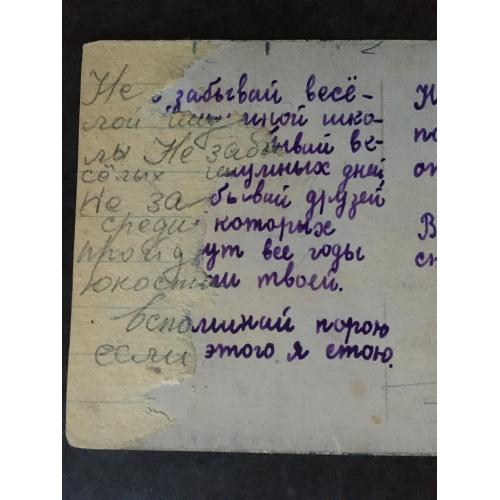 Не забывай весё-
лой шумной шко-
лы Не забывай ве-
сёлых шумных дней
Не забывай друзей
среди которых
пройдут все годы
юкости твоей.
вспоминай порою
если этого я стою.
Н
по
от
В
сн